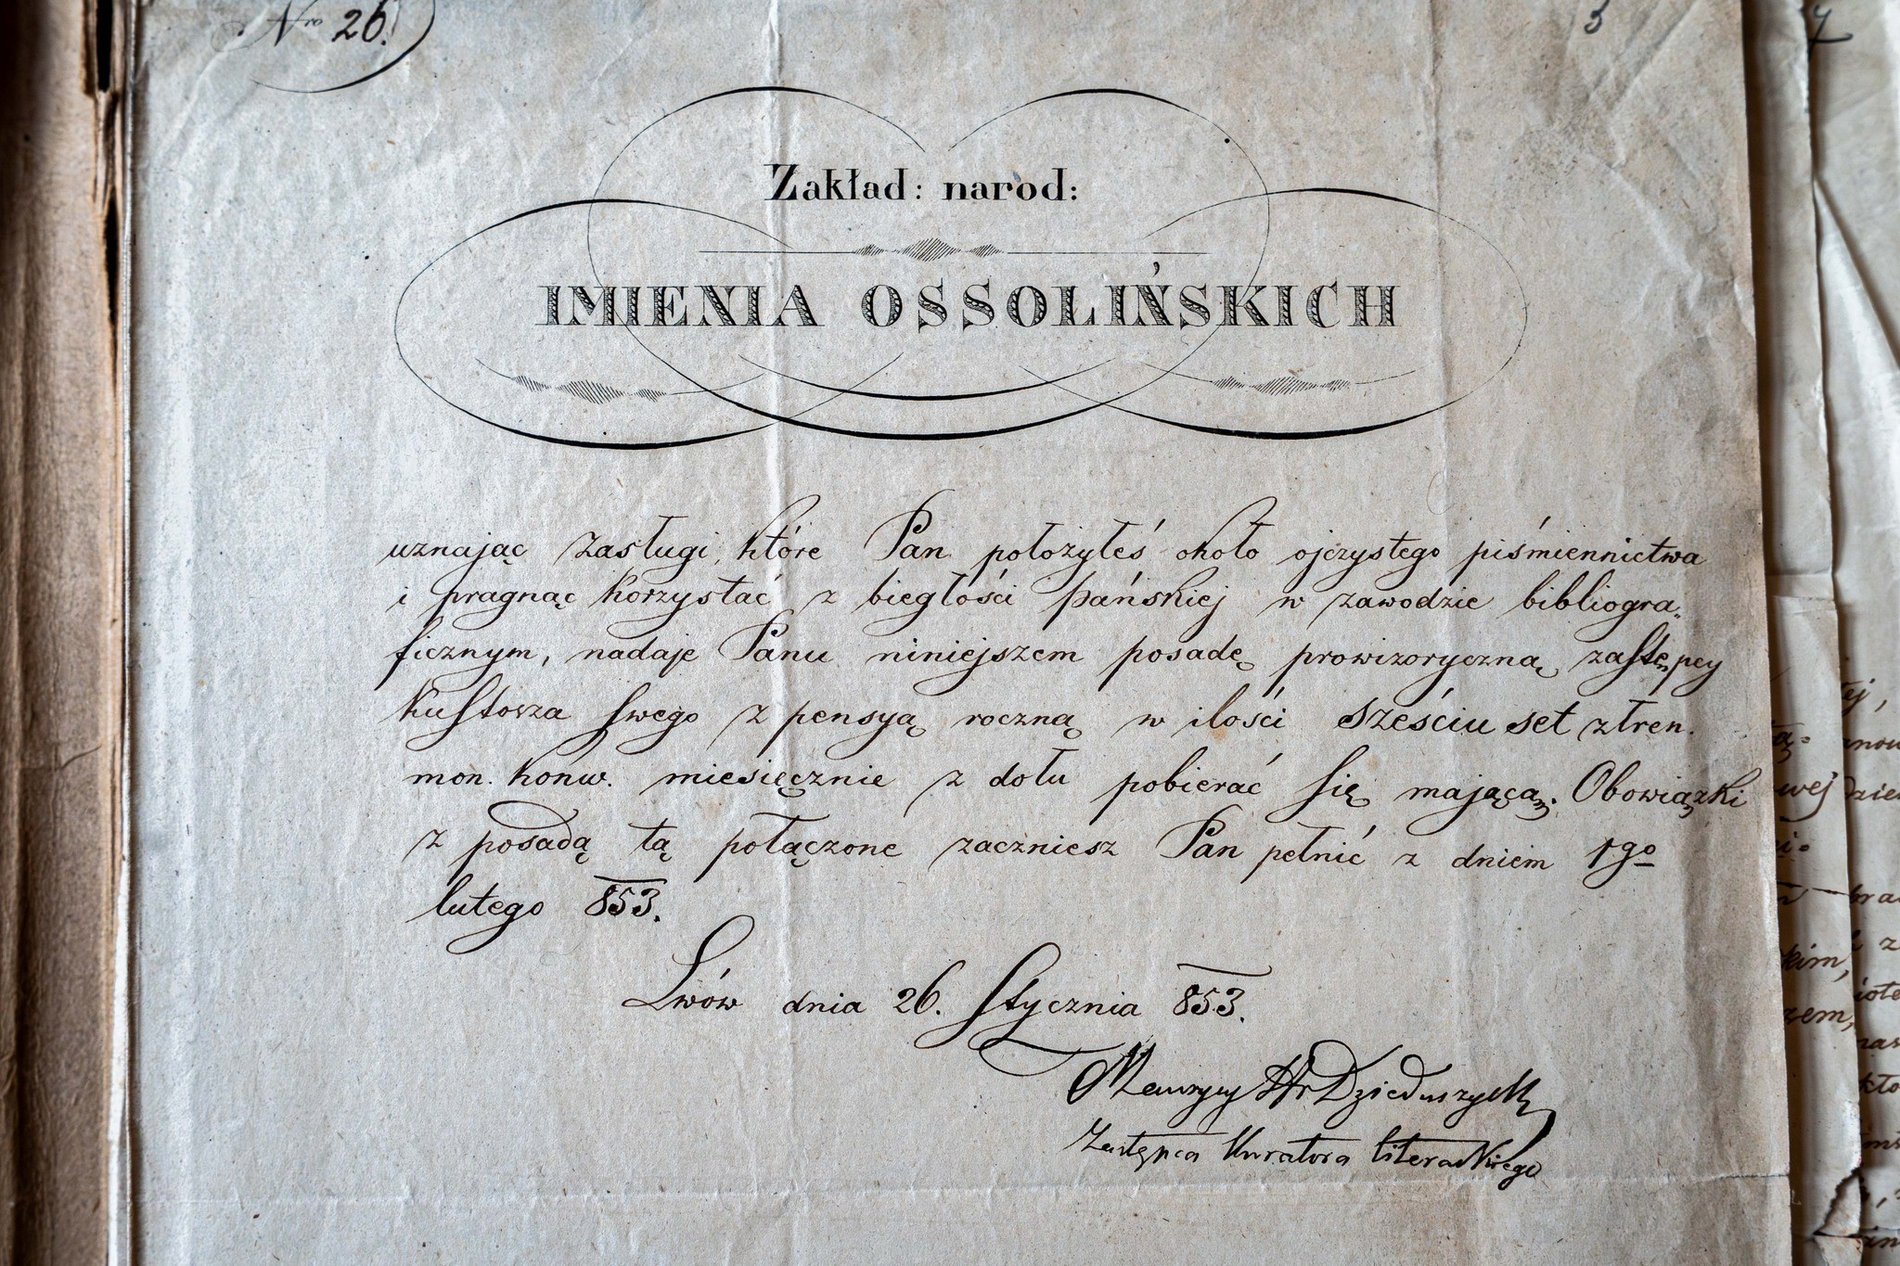 Nro 26.
3
4
Zakład: narod:
IMIENIA OSSOLIŃSKICH
uznając zasługi, które Pan położyłeś około ojczystego piśmiennictwa
i pragnąc korzystać z biegłości pańskiej w zawodzie bibliogra„
ficznym, nadaje Panu niniejszem posadę prowizoryczną zastępcy
kustosza swego z pensyą roczną w ilości sześciu set złren.
mon. konw. miesięcznie z dołu pobierać się mającą. Obowiązki
z posadą tą połączone zaczniesz Pan pełnić z dniem 1go
lutego 853.
Lwów dnia 26. Stycznia 853.
Maurycy Hr Dzieduszycki
Zastępca Kuratora literackiego